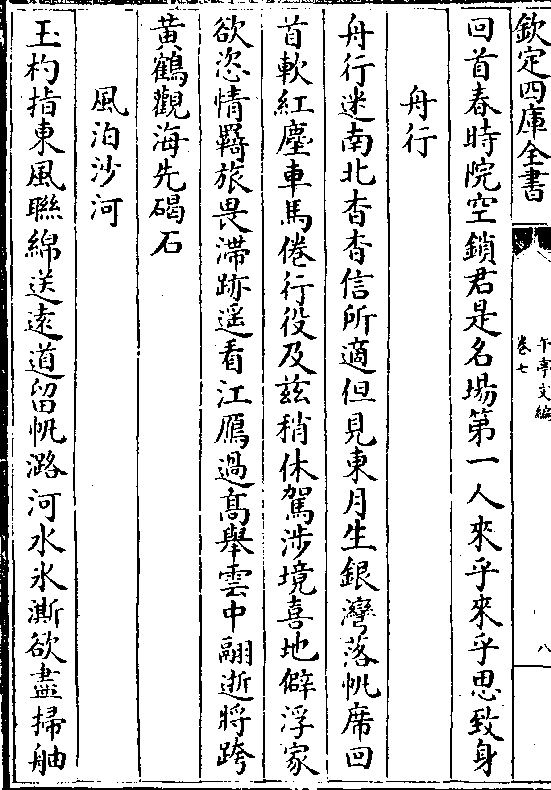 欽定四庫全書
午亭文編
卷七
八
回首春時院空鎖君是名場第一人來乎來乎思致身
舟行
舟行迷南北杳杳信所適但見東月生銀灣落帆席回
首軟紅塵車馬倦行役及茲稍休駕涉境喜地僻浮家
欲恣情羇旅畏滯跡遥看江鴈過髙舉雲中翮逝將跨
黃鶴觀海先碣石
風泊沙河
玉杓指東風聯綿送遠道留帆潞河水氷澌欲盡掃舳